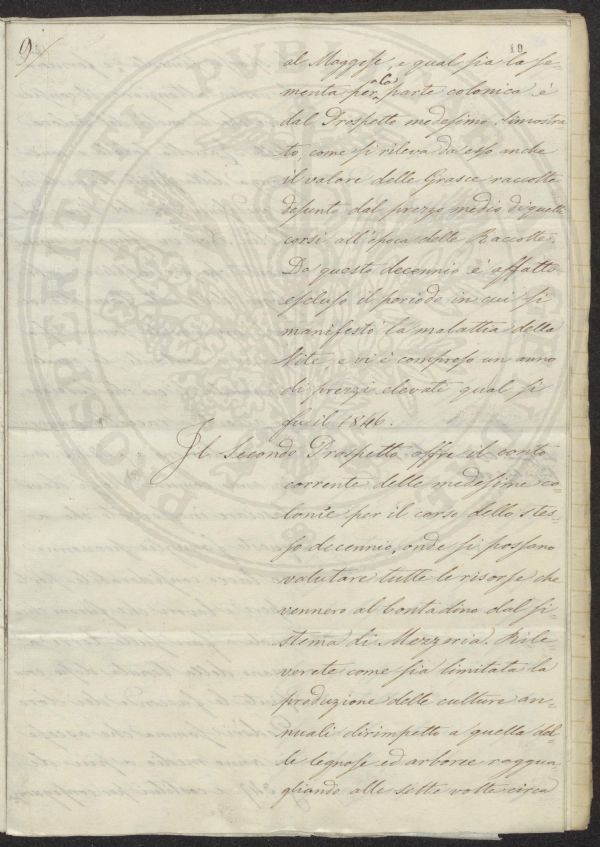 9/
10.
al Maggese, e qual sia la se=
menta per la parte colonica è
dal Prospetto medesimo dimostra
to, come si rileva da esso anche
il valore delle Grasce raccolte
desunto dal prezzo medio di quelli
corsi all'epoca delle Raccolte.
Da questo decennio è affatto
escluso il periodo in cui si
manifestò la malattia della
Vite, e vi è compreso un anno
di prezzi elevati qual si
fu il 1846.
Il Secondo Prospetto offre il conto
corrente delle medesime co=
lonie per il corso dello stes=
so decennio, onde si possano
valutare tutte le risorse che
vennero al contadino dal si=
stema di Mezzeria. Rile=
verete come sia limitata la
produzione delle culture an=
nuali dirimpetto a quella del=
le legnose ed arboree raggua=
gliando alle sette volte circa